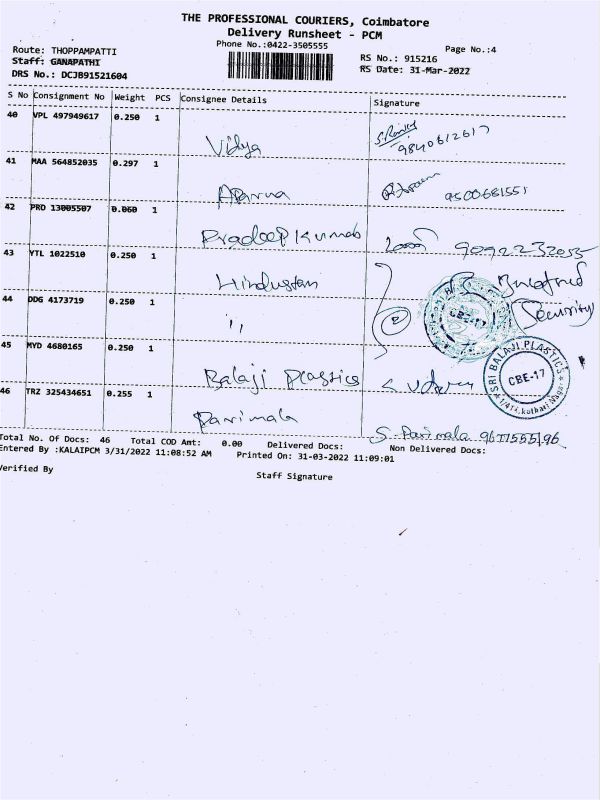 THE PROFESSIONAL COURIERS, Coimbatore
Delivery Runsheet - PCM
Phone No.:0422-3505555
Page No.:4
Route: THOPPAMPATTI
Staff: GANAPATHI
DRS No.: DCJB91521604
RS No.: 915216
RS Date: 31-Mar-2022
S No Consignment No Weight PCS Consignee Details Signature
40 VPL 497949617 0.250 1
Vidya 9840612617
41 MAA 564852035 0.297 1
Aparna 9500681551
42 PRD 13005507 0.060 1
Pradeep Kumar
43 YTL 1022510 0.250 1
Hindustan
44 DDG 4173719 0.250 1
,, Security
CBE-17
45 MYD 4680165 0.250 1
Balaji Plastics
SRI BALAJI PLASTICS
CBE-17
46 TRZ 325434651 0.255 1
Parimala
S. Parimala
Total No. Of Docs: 46 Total COD Amt: 0.00 Delivered Docs: Non Delivered Docs:
Entered By :KALAIPCM 3/31/2022 11:08:52 AM Printed On: 31-03-2022 11:09:01
Verified By
Staff Signature